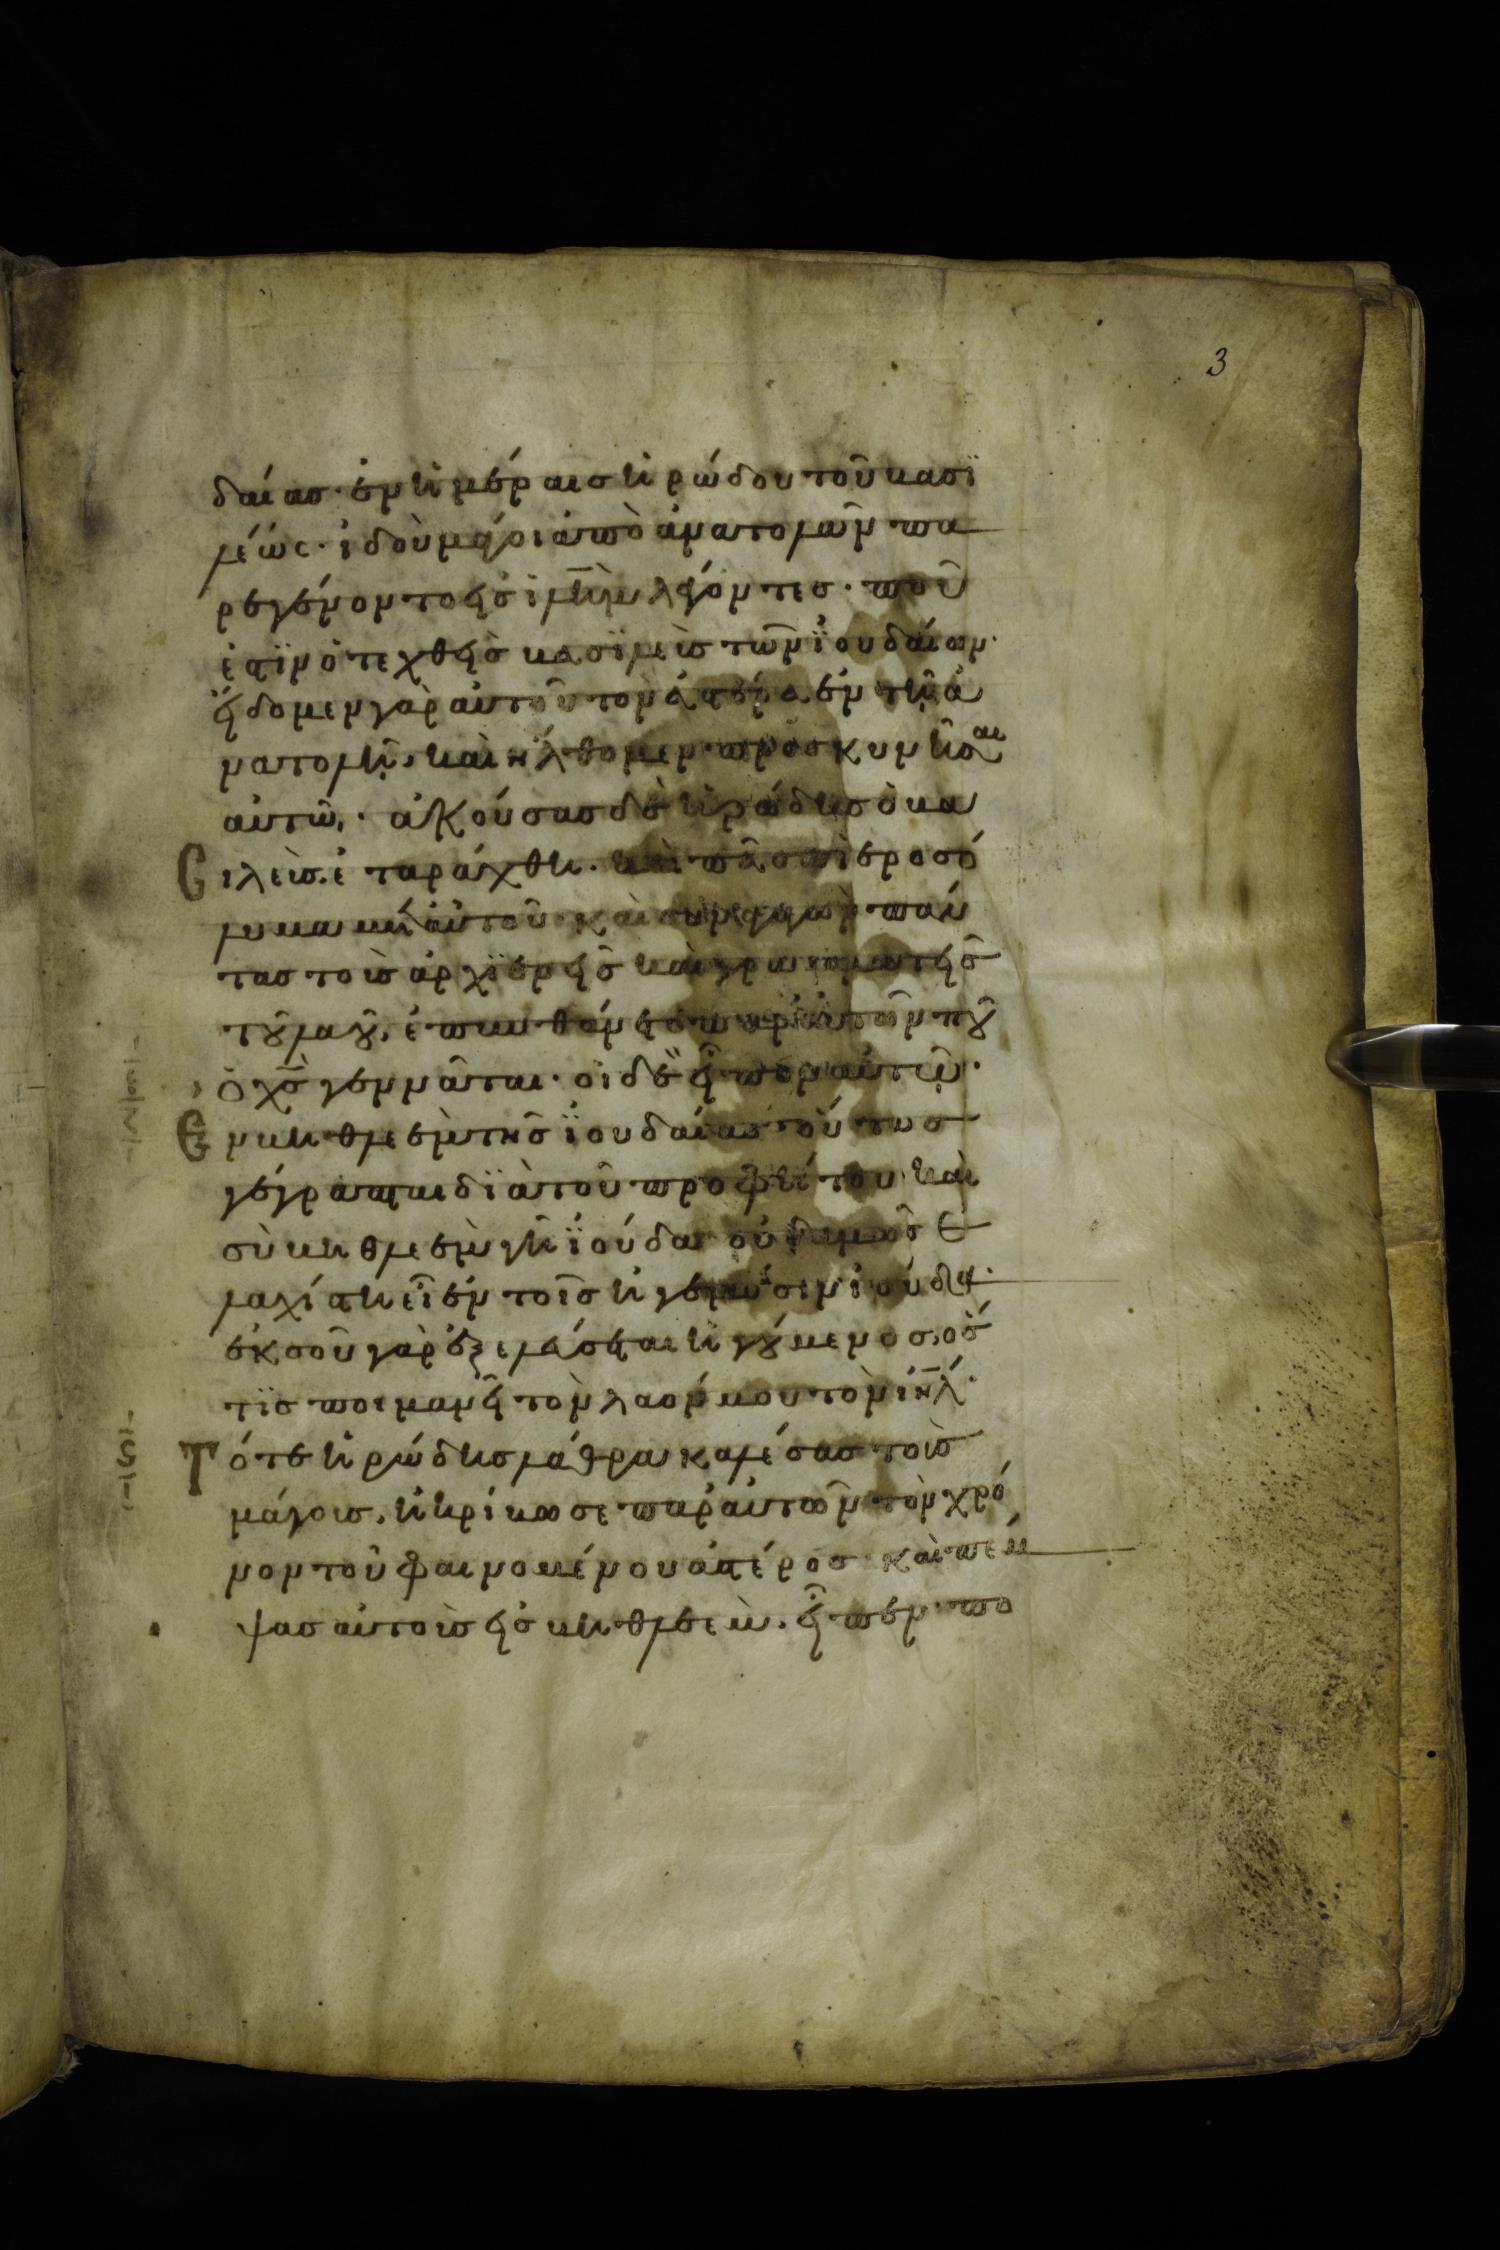 3
δαίας· ἐν ἡμέραις ἡρώδου τοῦ βασϊ
λέως· ἰδοὺ μάγοι ἀπὸ ἀνατολῶν πα
ρεγένοντο εἰς ἱλ̅ημ λέγοντες· ποῦ
ἐστϊν ὁ τεχθεὶς βασϊλεὺς τῶν ϊουδαίων·
εἴδομεν γὰρ αὐτοῦ τὸν ἀστέρα ἐν τῆ ἀ
νατολῆ, καὶ ἤλθομεν προσκυνῆσαι
αὐτῶ· ἀκούσας δὲ ἡρώδης ὁ βα
σιλεὺς ἐταράχθη· καὶ πᾶσα ἱεροσό
λυμα μετ αὐτοῦ· καὶ συναγαγὼν πάν
τας τοὺς ἀρχϊερεῖς καὶ γραμματεῖς
τοῦ λαοῦ, ἐπυνθάνετο παρ αὐτῶν ποῦ
ὁ χ̅ς γεννᾶται· οἱ δὲ εἶπον αὐτῶ·
Ἐν βηθλεὲμ τῆς ϊουδαίας· οὕτως
γέγραπται δϊὰ τοῦ προφήτου καὶ
σὺ βηθλεὲμ γῆ ϊούδα οὐδαμῶς ἐ
λαχίστη εἶ ἐν τοῖς ἡγεμόσιν ἰούδα·
ἐκ σοῦ γὰρ ἐξελεύσεται ἡγούμενος, ὅς
τϊς ποιμανεῖ τὸν λαόν μου τὸν ἰη̅λ·
Τότε ἡρώδης λάθρα καλέσας τοὺς
μάγους, ἠκρίβωσε παρ αὐτῶν τὸν χρό
νον τοῦ φαινομένου ἀστέρος καὶ πέμ
ψας αὐτοὺς εἰς βηθλεέμ. εἶπεν· πο